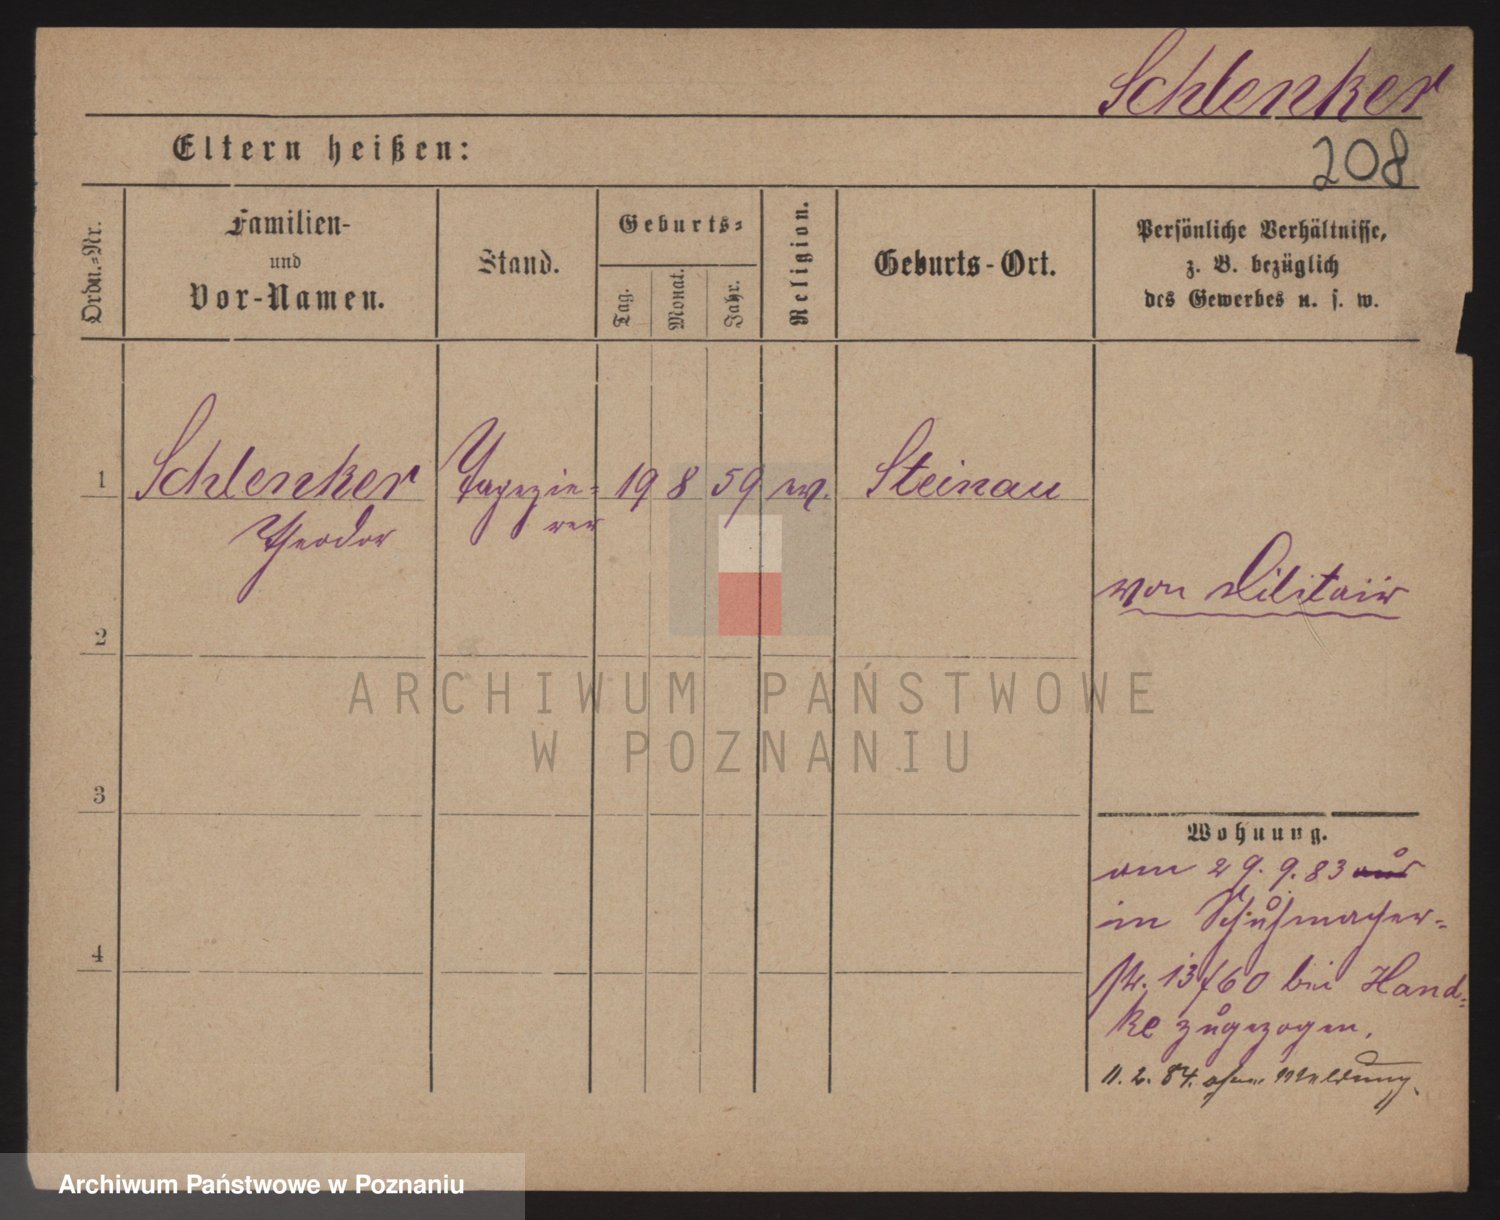 Schlenker
Eltern heißen:
208
Ordn.-Nr.
Familien-
und
Vor-Namen.
Stand.
Geburts-
Tag.
Monat.
Jahr.
Religion.
Geburts-Ort.
Persönliche Verhältnisse,
z. B. bezüglich
des Gewerbes u. s. w.
1
Schlenker
Theodor
Tapezie-
rer
19 8 59
ev.
Steinau
von Militair
2
ARCHIWUM PAŃSTWOWE
W POZNANIU
3
Wohnung.
am 29.9.83 aus
in Schuhmacher-
str. 13/60 bei Hand-
ke zugezogen.
4
11.2.84. ohne Meldung.
Archiwum Państwowe w Poznaniu